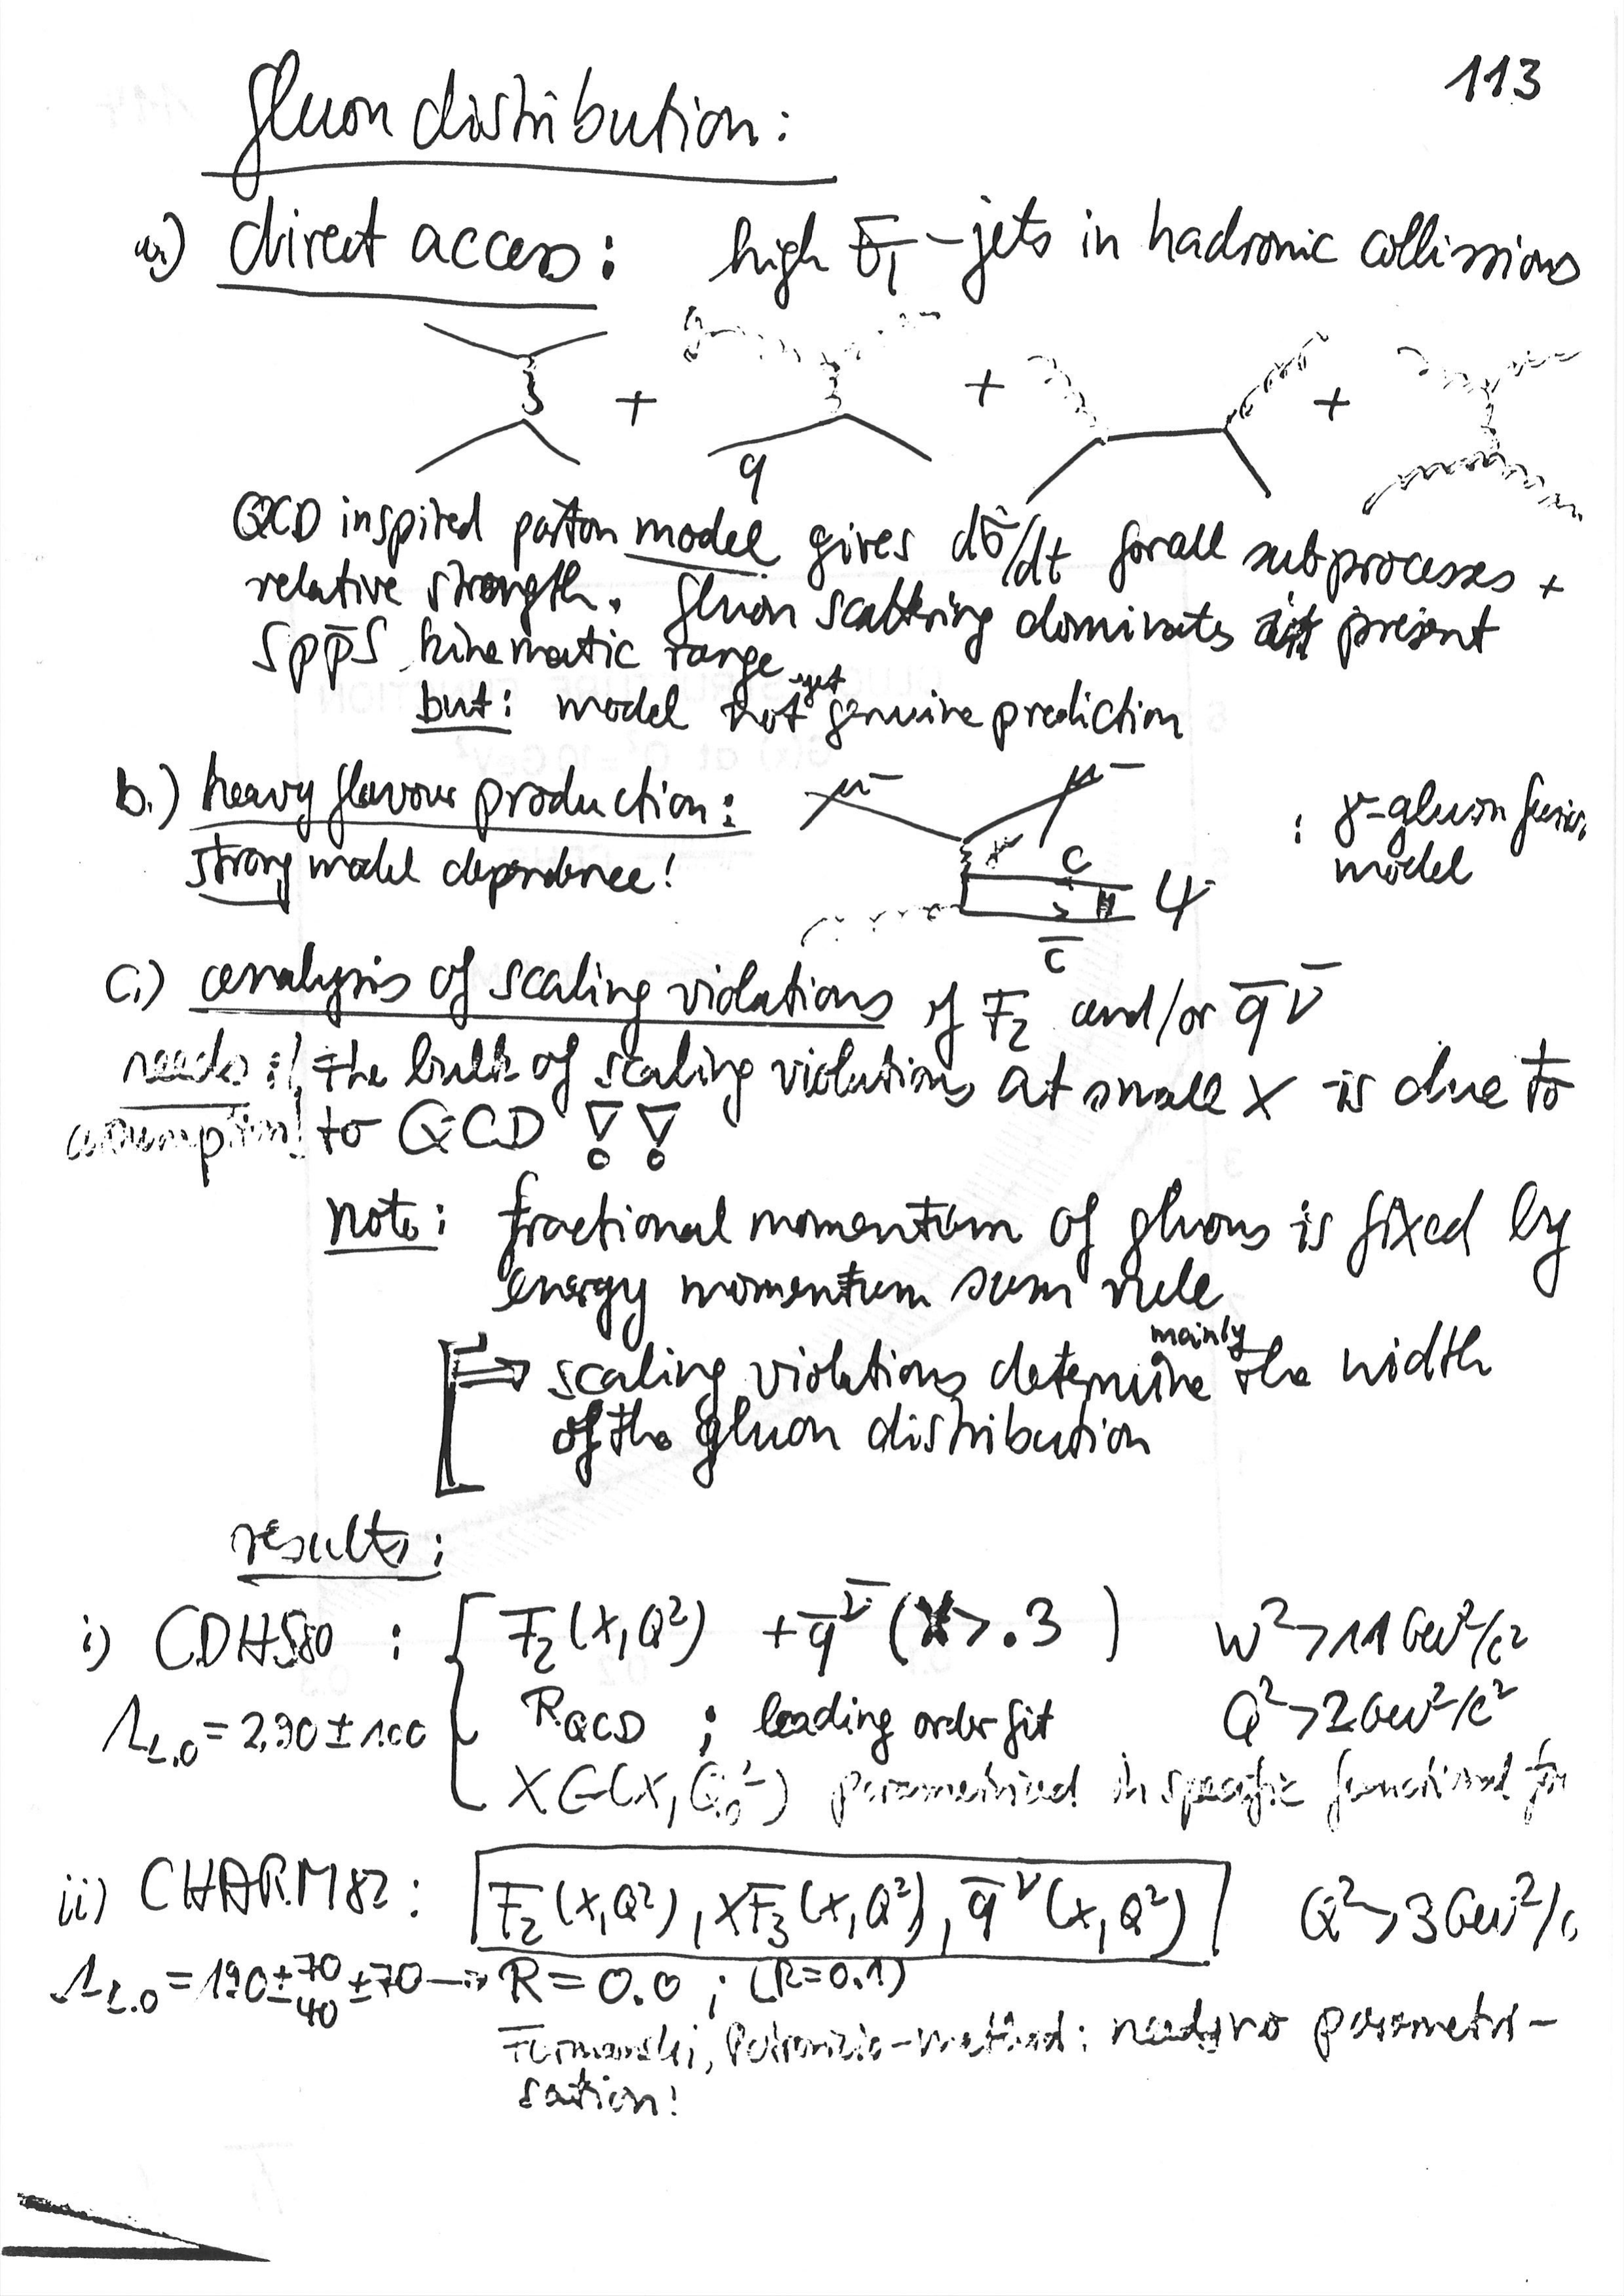 113
gluon distribution:
a.) direct access: high E_T-jets in hadronic collissions
+ + +
q
QCD inspired parton model gives dσ̂/dt for all subprocesses +
relative strength. gluon scattering dominates at present
Sp̄pS kinematic range
but: model not yet genuine prediction
b.) heavy flavour production: μ⁻ μ⁻ : γ-gluon fusion
strong model dependence! γ* c ψ model
c̄
c.) analysis of scaling violations of F₂ and/or q̄^ν̄
needs the bulk of scaling violations at small x is due to
assumption to QCD !!
note: fractional momentum of gluons is fixed by
energy momentum sum rule
⇒ scaling violations determine mainly the width
of the gluon distribution
results:
i) CDHS80 : { F₂(x,Q²) + q̄^ν̄ (x>.3) W²>11 GeV²/c²
Λ_L.O = 290±100 R_QCD ; leading order fit Q²>2 GeV²/c²
xG(x,Q₀²) parametrized in specific functional for
ii) CHARM82: F₂(x,Q²), xF₃(x,Q²), q̄^ν(x,Q²) Q²>3 GeV²/c
Λ_L.O = 190±⁷⁰₄₀±70 → R=0.0 ; (R=0.1)
Furmanski, Petronzio-method: needs no parametri-
sation!